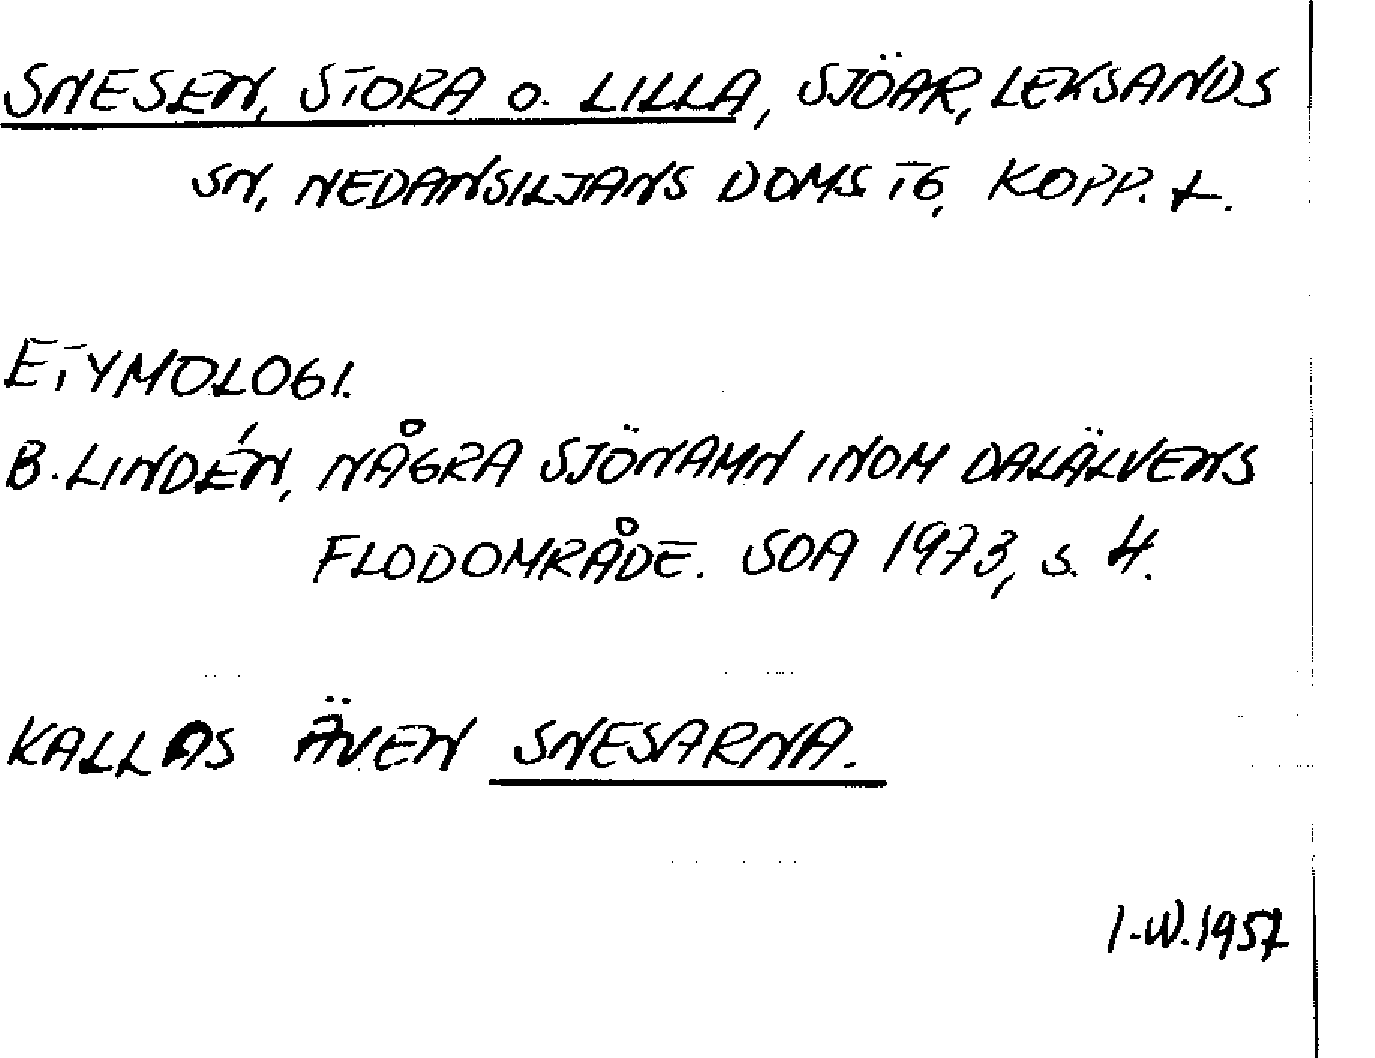 SNESEN, STORA o. LILLA, SJÖAR, LEKSANDS
SN, NEDANSILJANS DOMS TG, KOPP. L.
ETYMOLOGI.
B. LINDÉN, NÅGRA SJÖNAMN INOM DALÄLVENS
FLODOMRÅDE. SOA 1973, s. 4.
KALLAS ÄVEN SNESARNA.
I-W. 1957